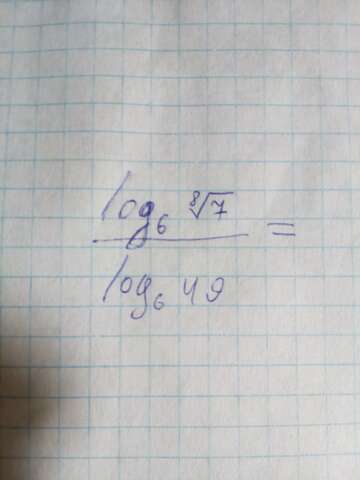 log₆ ⁸√7 =
log₆ 49